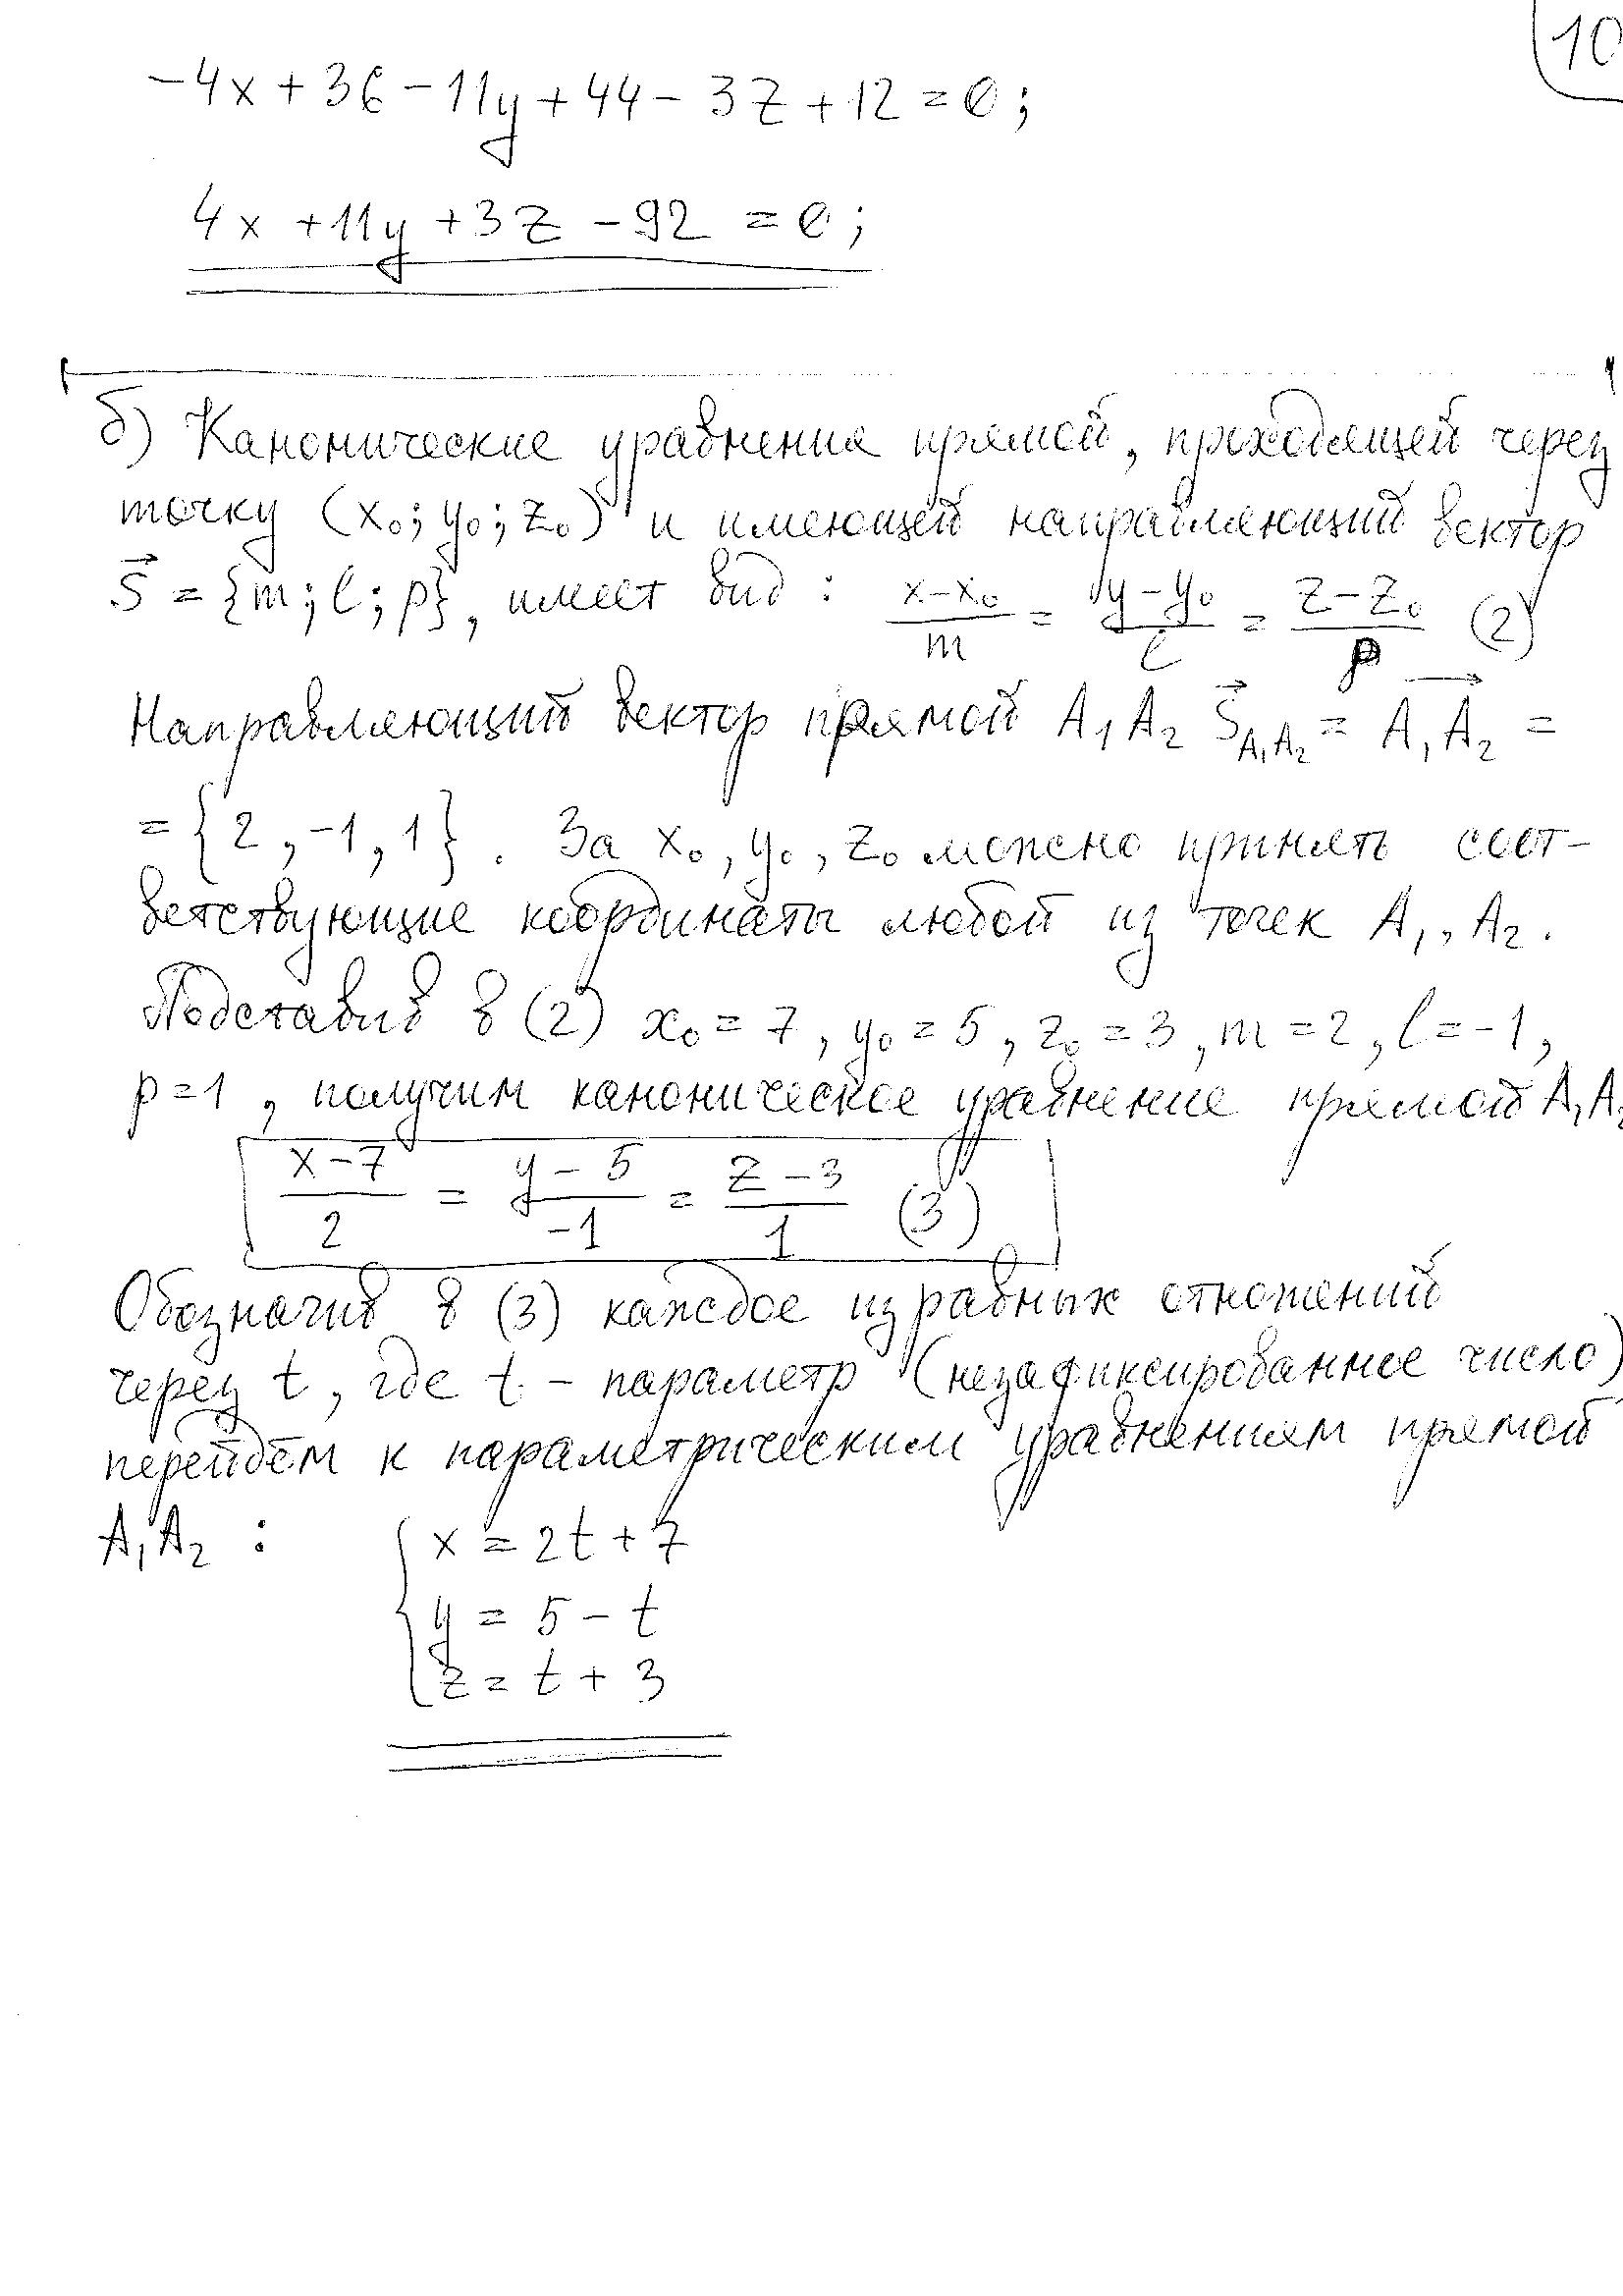 10
-4x + 36 - 11y + 44 - 3z + 12 = 0;
4x + 11y + 3z - 92 = 0;
б) Канонические уравнения прямой, приходящей через
точку (x₀; y₀; z₀) и имеющей направляющий вектор
S⃗ = {m; l; p}, имеет вид: (x-x₀)/m = (y-y₀)/l = (z-z₀)/p (2)
Направляющий вектор прямой A₁A₂ S⃗_A₁A₂ = A₁A₂⃗ =
= {2, -1, 1}. За x₀, y₀, z₀ можно принять соот-
ветствующие координаты любой из точек A₁, A₂.
Подставив в (2) x₀ = 7, y₀ = 5, z₀ = 3, m = 2, l = -1,
p = 1, получим каноническое уравнение прямой A₁A₂
(x-7)/2 = (y-5)/-1 = (z-3)/1 (3)
Обозначив в (3) каждое из равных отношений
через t, где t - параметр (незафиксированное число)
перейдём к параметрическим уравнениям прямой
A₁A₂: { x = 2t + 7
y = 5 - t
z = t + 3